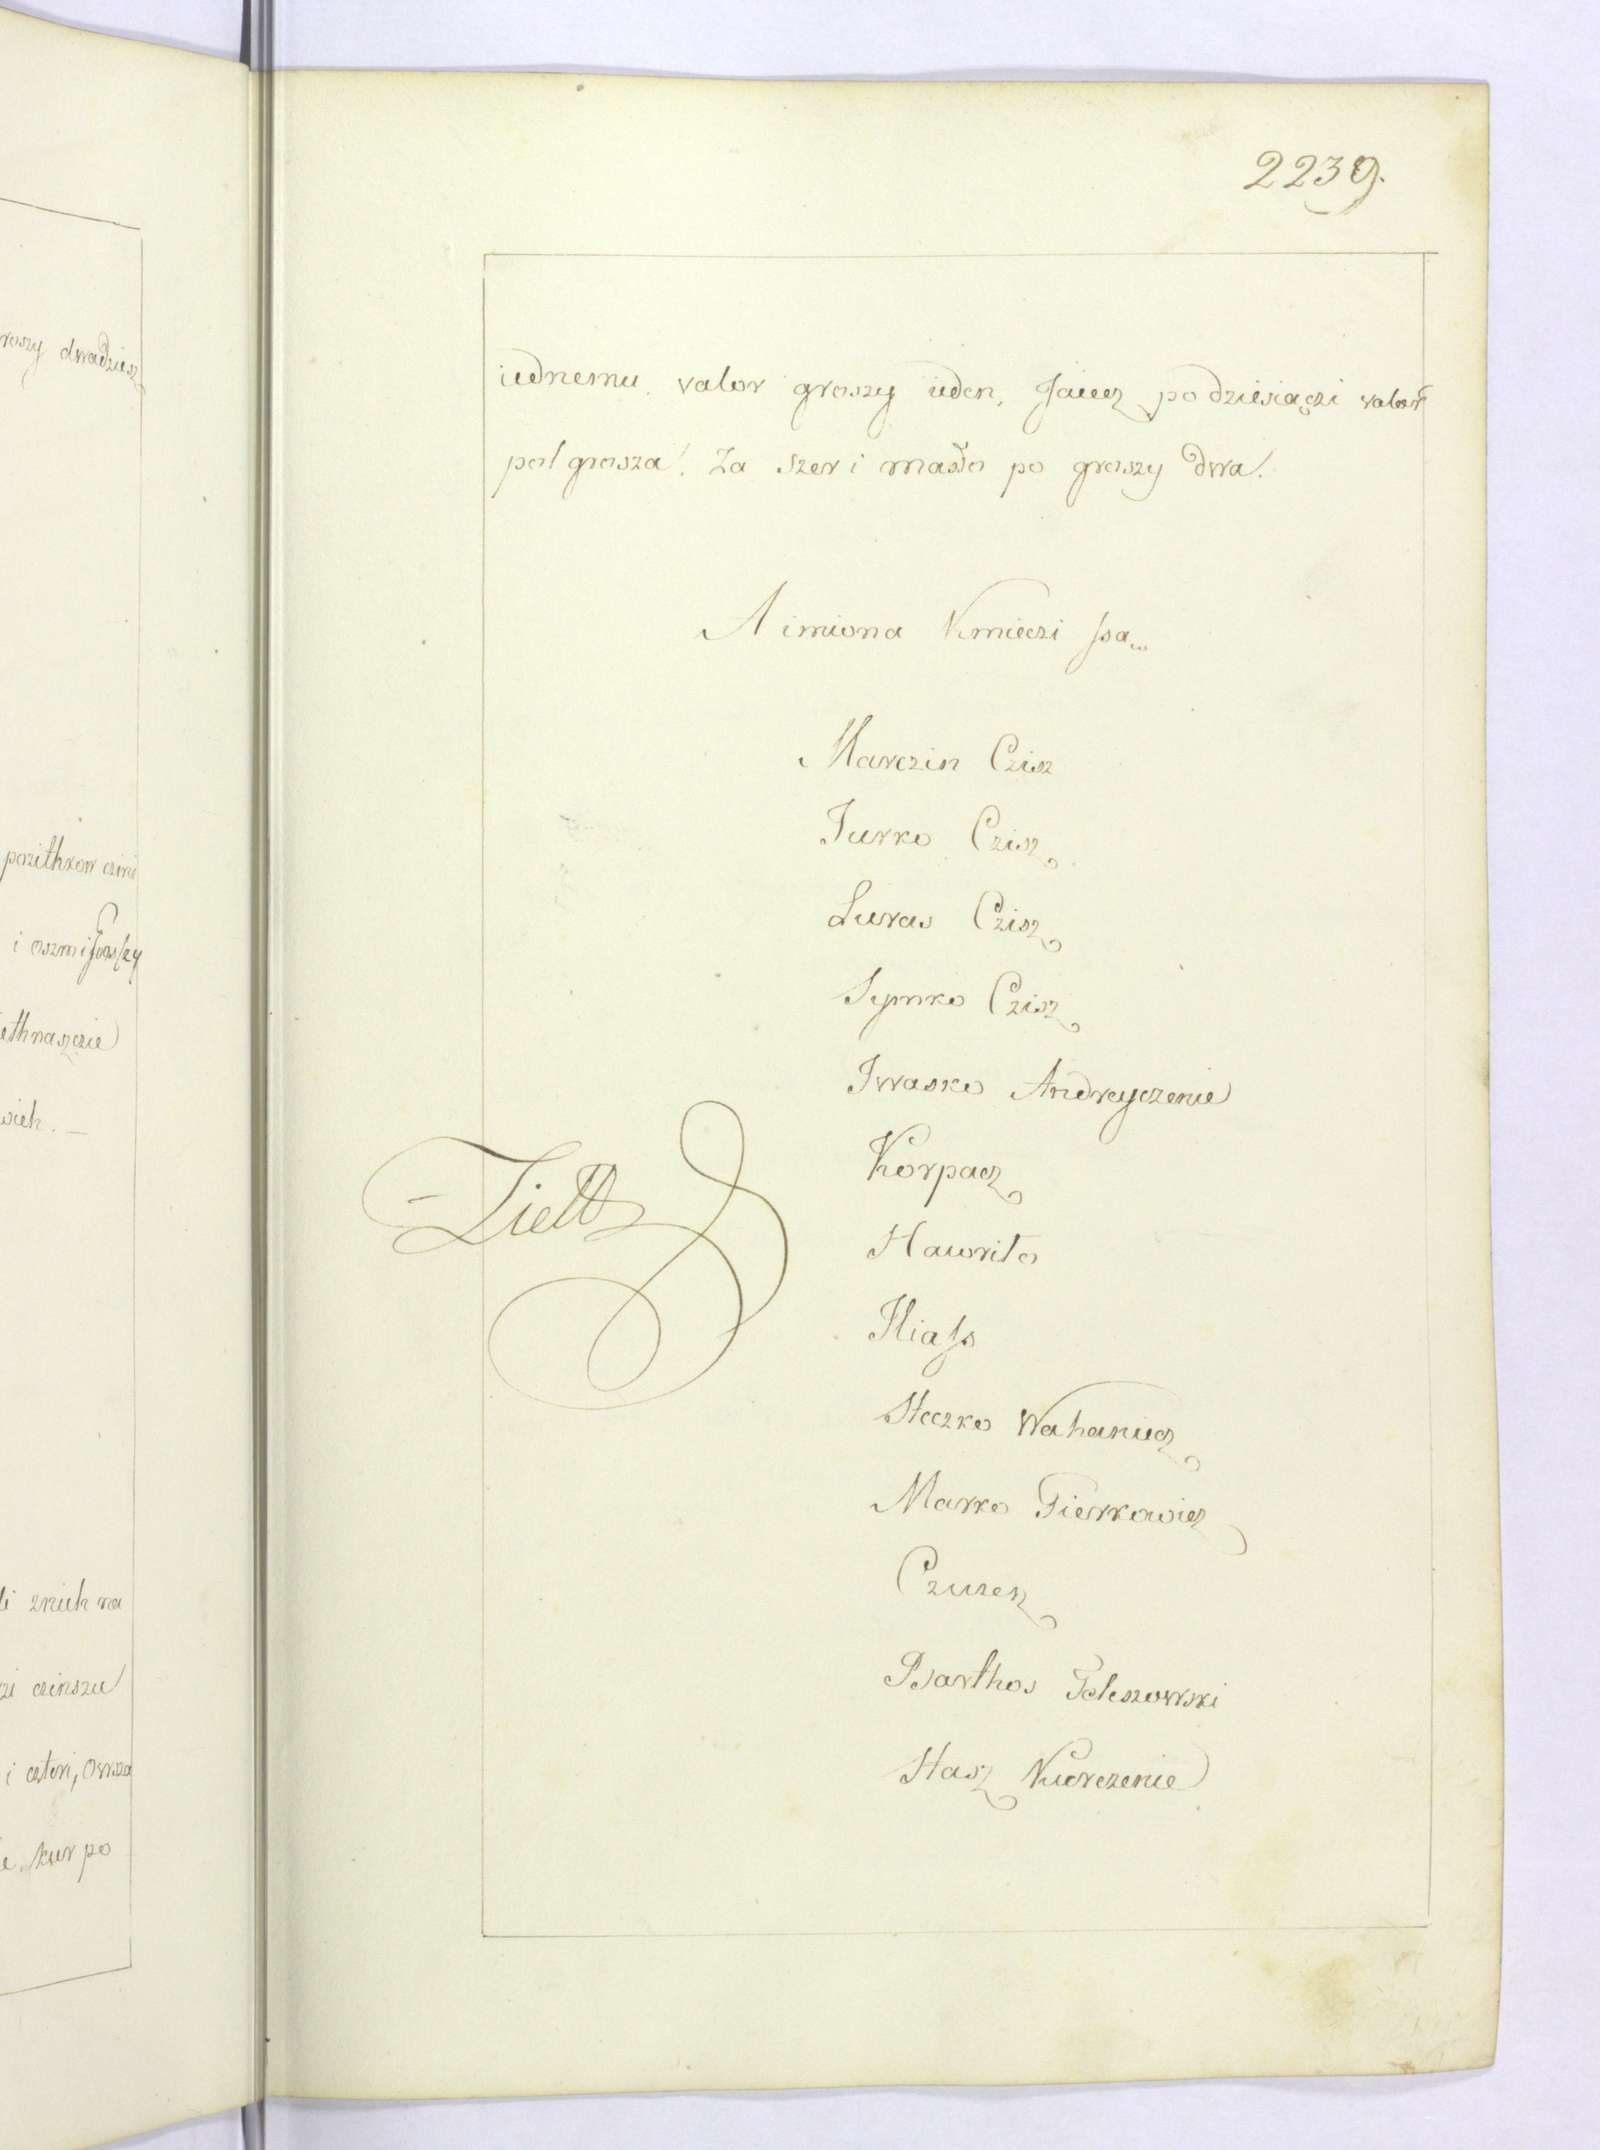 2239.
iednemu. valor groszy ieden, Jaiecz po dziesiączi valor
pol grosza. Za Szer i masło po groszy dwa.
A imiona Kmieczi są
Marczin Czisz
Jurko Czisz
Lucas Czisz
Symko Czisz
Iwasko Andreyczenie
Korpacz
Hawrilo
Iliass
Steczko Wahaniecz
Marko Pierkowicz
Czuzen
Barthos Goleszowski
Stasz Kierczenie
roszy dwadziesz
pozithkow czini
i oszmi groszy
ethnaszczie
wich. —
li znich na
zi czinszu
i czteri, Owsza
e, kur po